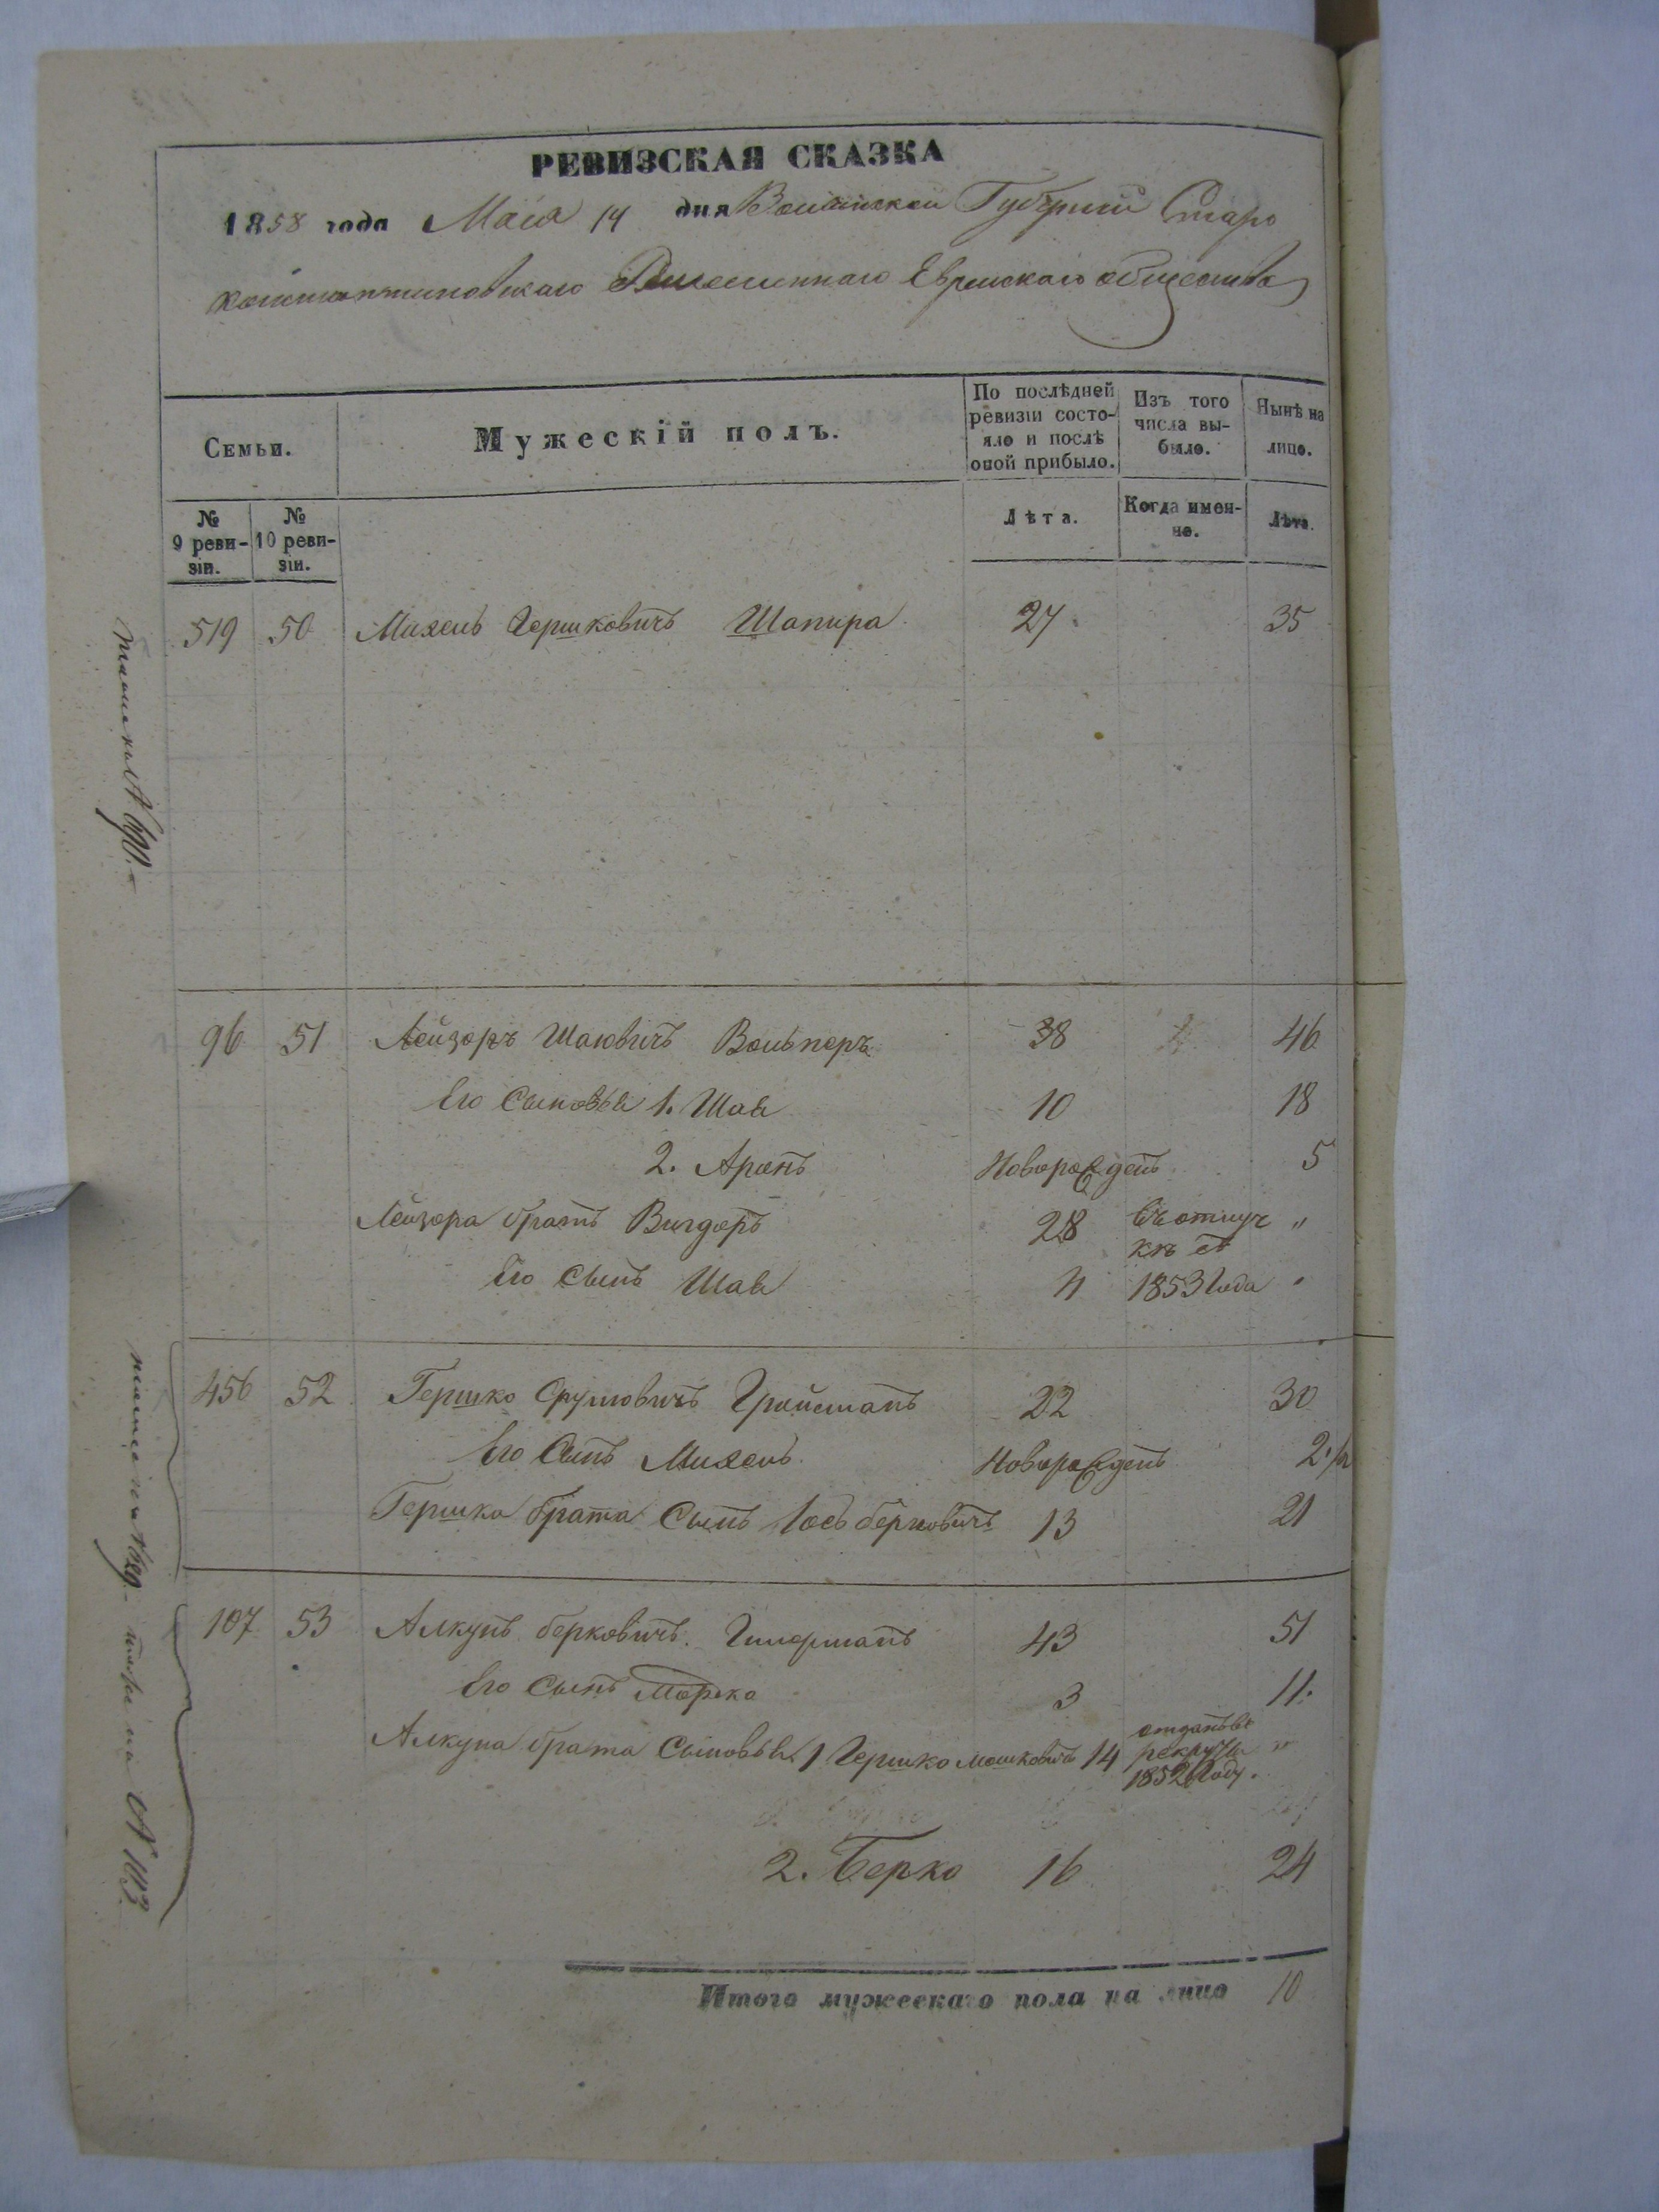 РЕВИЗСКАЯ СКАЗКА
1858 года Маія 14 дня Волынской Губерніи Старо
константиновскаго Еврейскаго общества
Семьи.
Мужескій полъ.
По послѣдней ревизіи состояло и послѣ оной прибыло.
Изъ того числа выбыло.
Нынѣ на лицо.
№ 9 ревизіи.
№ 10 ревизіи.
Лѣта.
Когда именно.
Лѣта.
519 50 Михель Гершковичъ Шапира 27. 35
96 51 Лейзоръ Шаювичъ Вольперъ 38 46
Его Сыновья 1. Шая 10 18
2. Аронъ Новорожденъ 5
Лейзора братъ Вигдоръ 28 въ отлуч "
кѣ съ
Его Сынъ Шая 4 1853 Года "
456 52 Гершко Срулювичъ 22 30
Его Сынъ Михель Новорожденъ 2 1/2
Гершка брата Сынъ Іось берковичъ 13 21
107 53 Алкунъ берковичъ 43 51
Его Сынъ Морко 3 11.
Алкуна брата Сыновья 1 Гершко мошковичъ 14 отданъ въ рекруты 1852 Году. "
2. Берко 16 24
Итого мужескаго пола на лицо 10